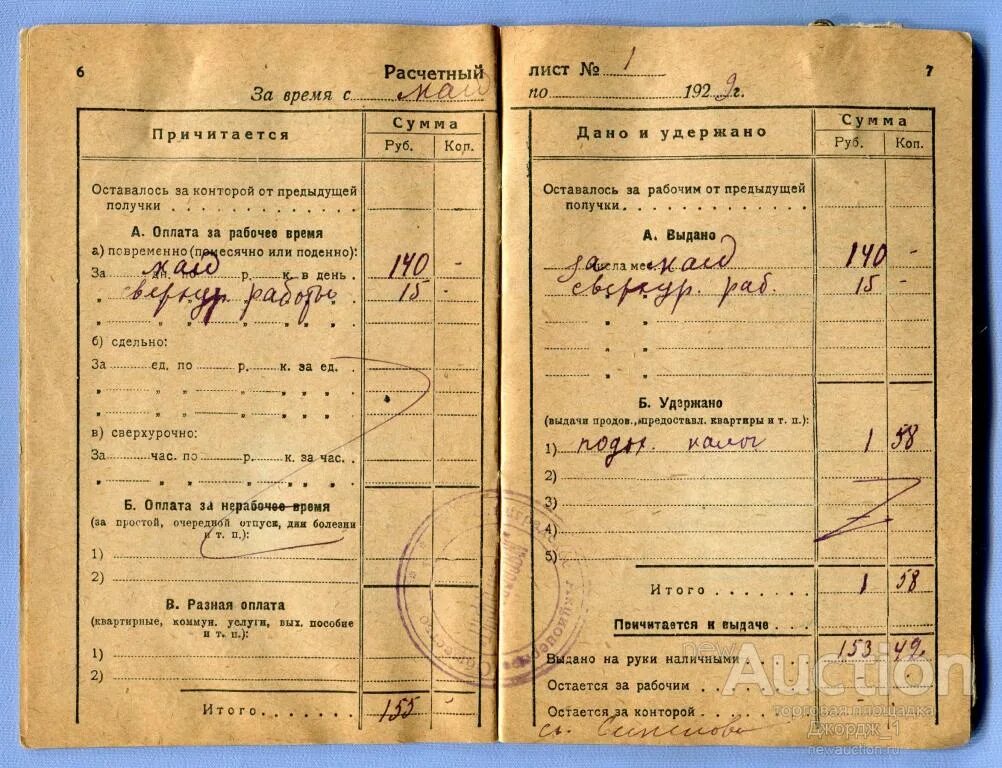 6
Расчетный
За время с май
Причитается
Сумма
Руб. Коп.
Оставалось за конторой от предыдущей
получки
А. Оплата за рабочее время
а) повременно (помесячно или поденно):
За май дн. по р. к. в день . 140 -
" сверхур. работы 15 -
" " " " " "
б) сдельно:
За ед. по р. к. за ед. .
" " " " " "
" " " " " "
в) сверхурочно:
За час. по р. к. за час. .
" " " " " "
Б. Оплата за нерабочее время
(за простой, очередной отпуск, дни болезни
и т. п.):
1)
2)
В. Разная оплата
(квартирные, коммун. услуги, вых. пособие
и т. п.):
1)
2)
Итого 155 -
7
лист № 1
по 1929 г.
Дано и удержано
Сумма
Руб. Коп.
Оставалось за рабочим от предыдущей
получки
А. Выдано
за числа мес. май 140 -
сверхур. раб. 15 -
" "
" "
" "
Б. Удержано
(выдачи продов., предоставл. квартиры и т. п.):
1) подох. налог 1 58
2)
3)
4)
5)
Итого 1 58
Причитается к выдаче
Выдано на руки наличными 153 42
Остается за рабочим -
Остается за конторой -
newAuction
торговая площадка
Джордж_1
newauction.ru